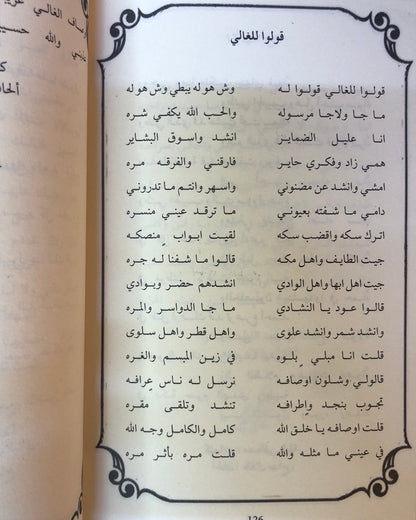 صاف الغالي
والله حسين
قولوا للغالي
قولـوا للغالي قولـوا لـه وش هو له يبطي وش هو له
ما جـا ولاجـا مرسـوله والحب الله يكفـي شـره
انـا عليـل الضمايـر انشـد واسـوق البشـاير
همـي زاد وفكـري حايـر فارقنـي والفرقـه مـره
امشي وانشد عن مضنوني واسـهر وانتـم ما تدروني
دامي ما شـفته بعيوني ما ترقـد عيني منسـره
اتـرك سـكه واقضب سـكه لقيـت ابـواب منصكـه
جيت الطايـف واهـل مكه قالـوا ما شـفنا لـه جـره
جيت اهل ابها واهل الوادي انشـدهم حضر وبـوادي
قالـوا عود يا النشـادي ما جـا الدواسـر والمـره
وانشـد شـمر وانشـد علوى واهـل قطر واهـل سلوى
قلـت انـا مبلـي بلـوه في زيـن المبسـم والغـره
قالولي وشـلون اوصافـه نرسـل لـه ناس عرافـه
تجـوب بنجـد واطرافـه تنشـد وتلقـى مقـره
قلت اوصافه يا خلق الله كامـل والكامل وجـه الله
في عيني ما مثلـه والله قلـت مـره بأثـر مـره
126